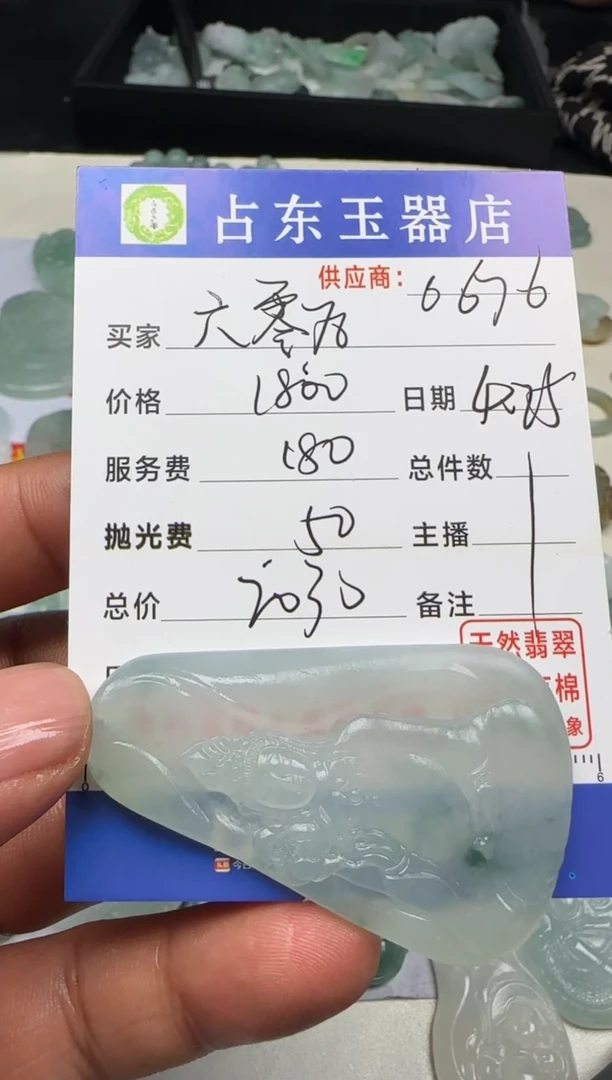 占东玉器店
供应商: 6676
买家 六零
价格 1800 日期
服务费 180 总件数
抛光费 50 主播
总价 2030 备注
天然翡翠
棉
象
6